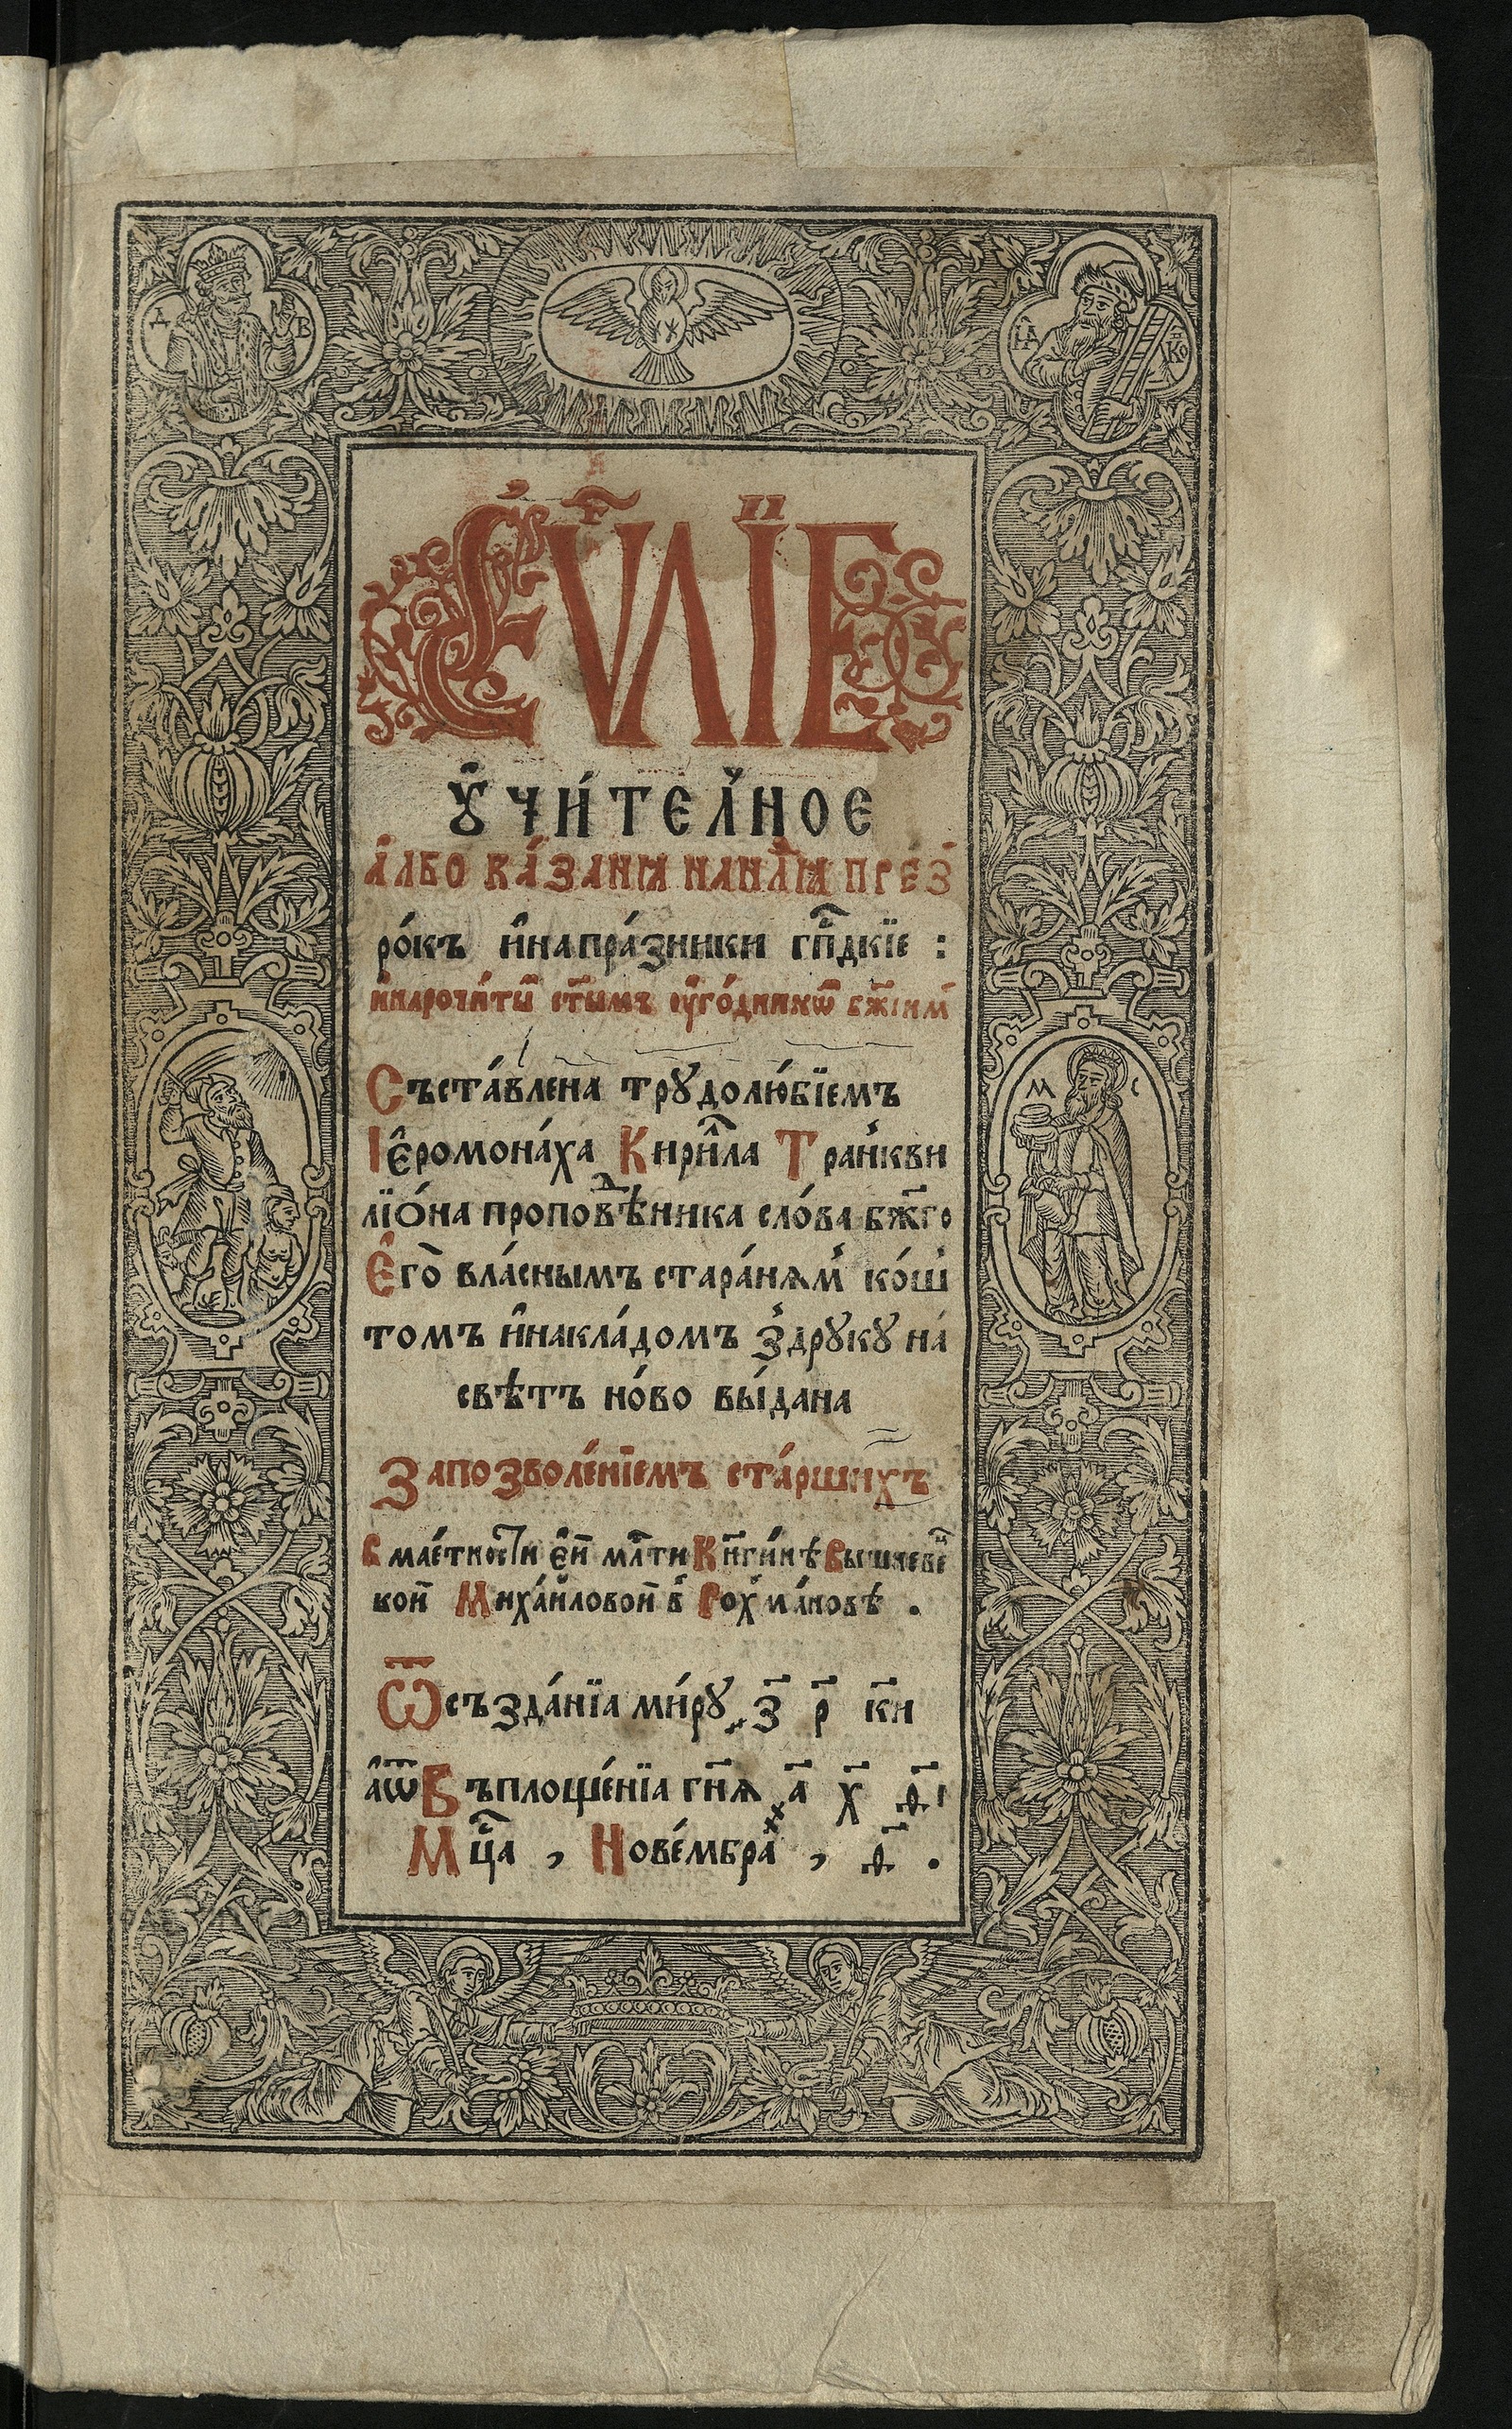 Д В
ІА КО
Є҆ѵⷢ҇лїе
Оу҆чи́телⸯное
а҆лбо ка́занѧ нанл҃ѧ пре́зⸯ
ро́къ и҆напра́здники гпⷭ҇дкїе :
и҆нарочи́тыⷨ ст҃ымъ ᲂу҆го́дникѡⷨ бж҃їимⸯ
Съста́влена трꙋдолю́бїемъ
Іє҆ромона́ха Кири́ⷧла Транⸯкви
лїѻ́на пропові́ⷣника сло́ва бж҃го
Є҆гѡ̀ вла́снымъ стара́нѧмⸯ ко́шⸯ
томъ и҆накла́домъ зⸯдрꙋкꙋ на́
свѣтъ но́во вы́дана
Запозволе́нїемъ ста́ршихъ
В мае́тности є҆ѝ мл҃ти Кн҃ги́нѣ Вышневеⷰ҇
кои̑ Миха́йловои̑ вⸯ Рохⸯма́новѣ .
Ѿ създа́нїа ми́рꙋ ҂з҃ р҃ к҃и
а҆ѿ Въплоще́нїа гн҃ѧ ҂а҃ х҃ ѳ҃і
Мцⷭ҇а , Нове́мбра , ѳ҃ .
М С